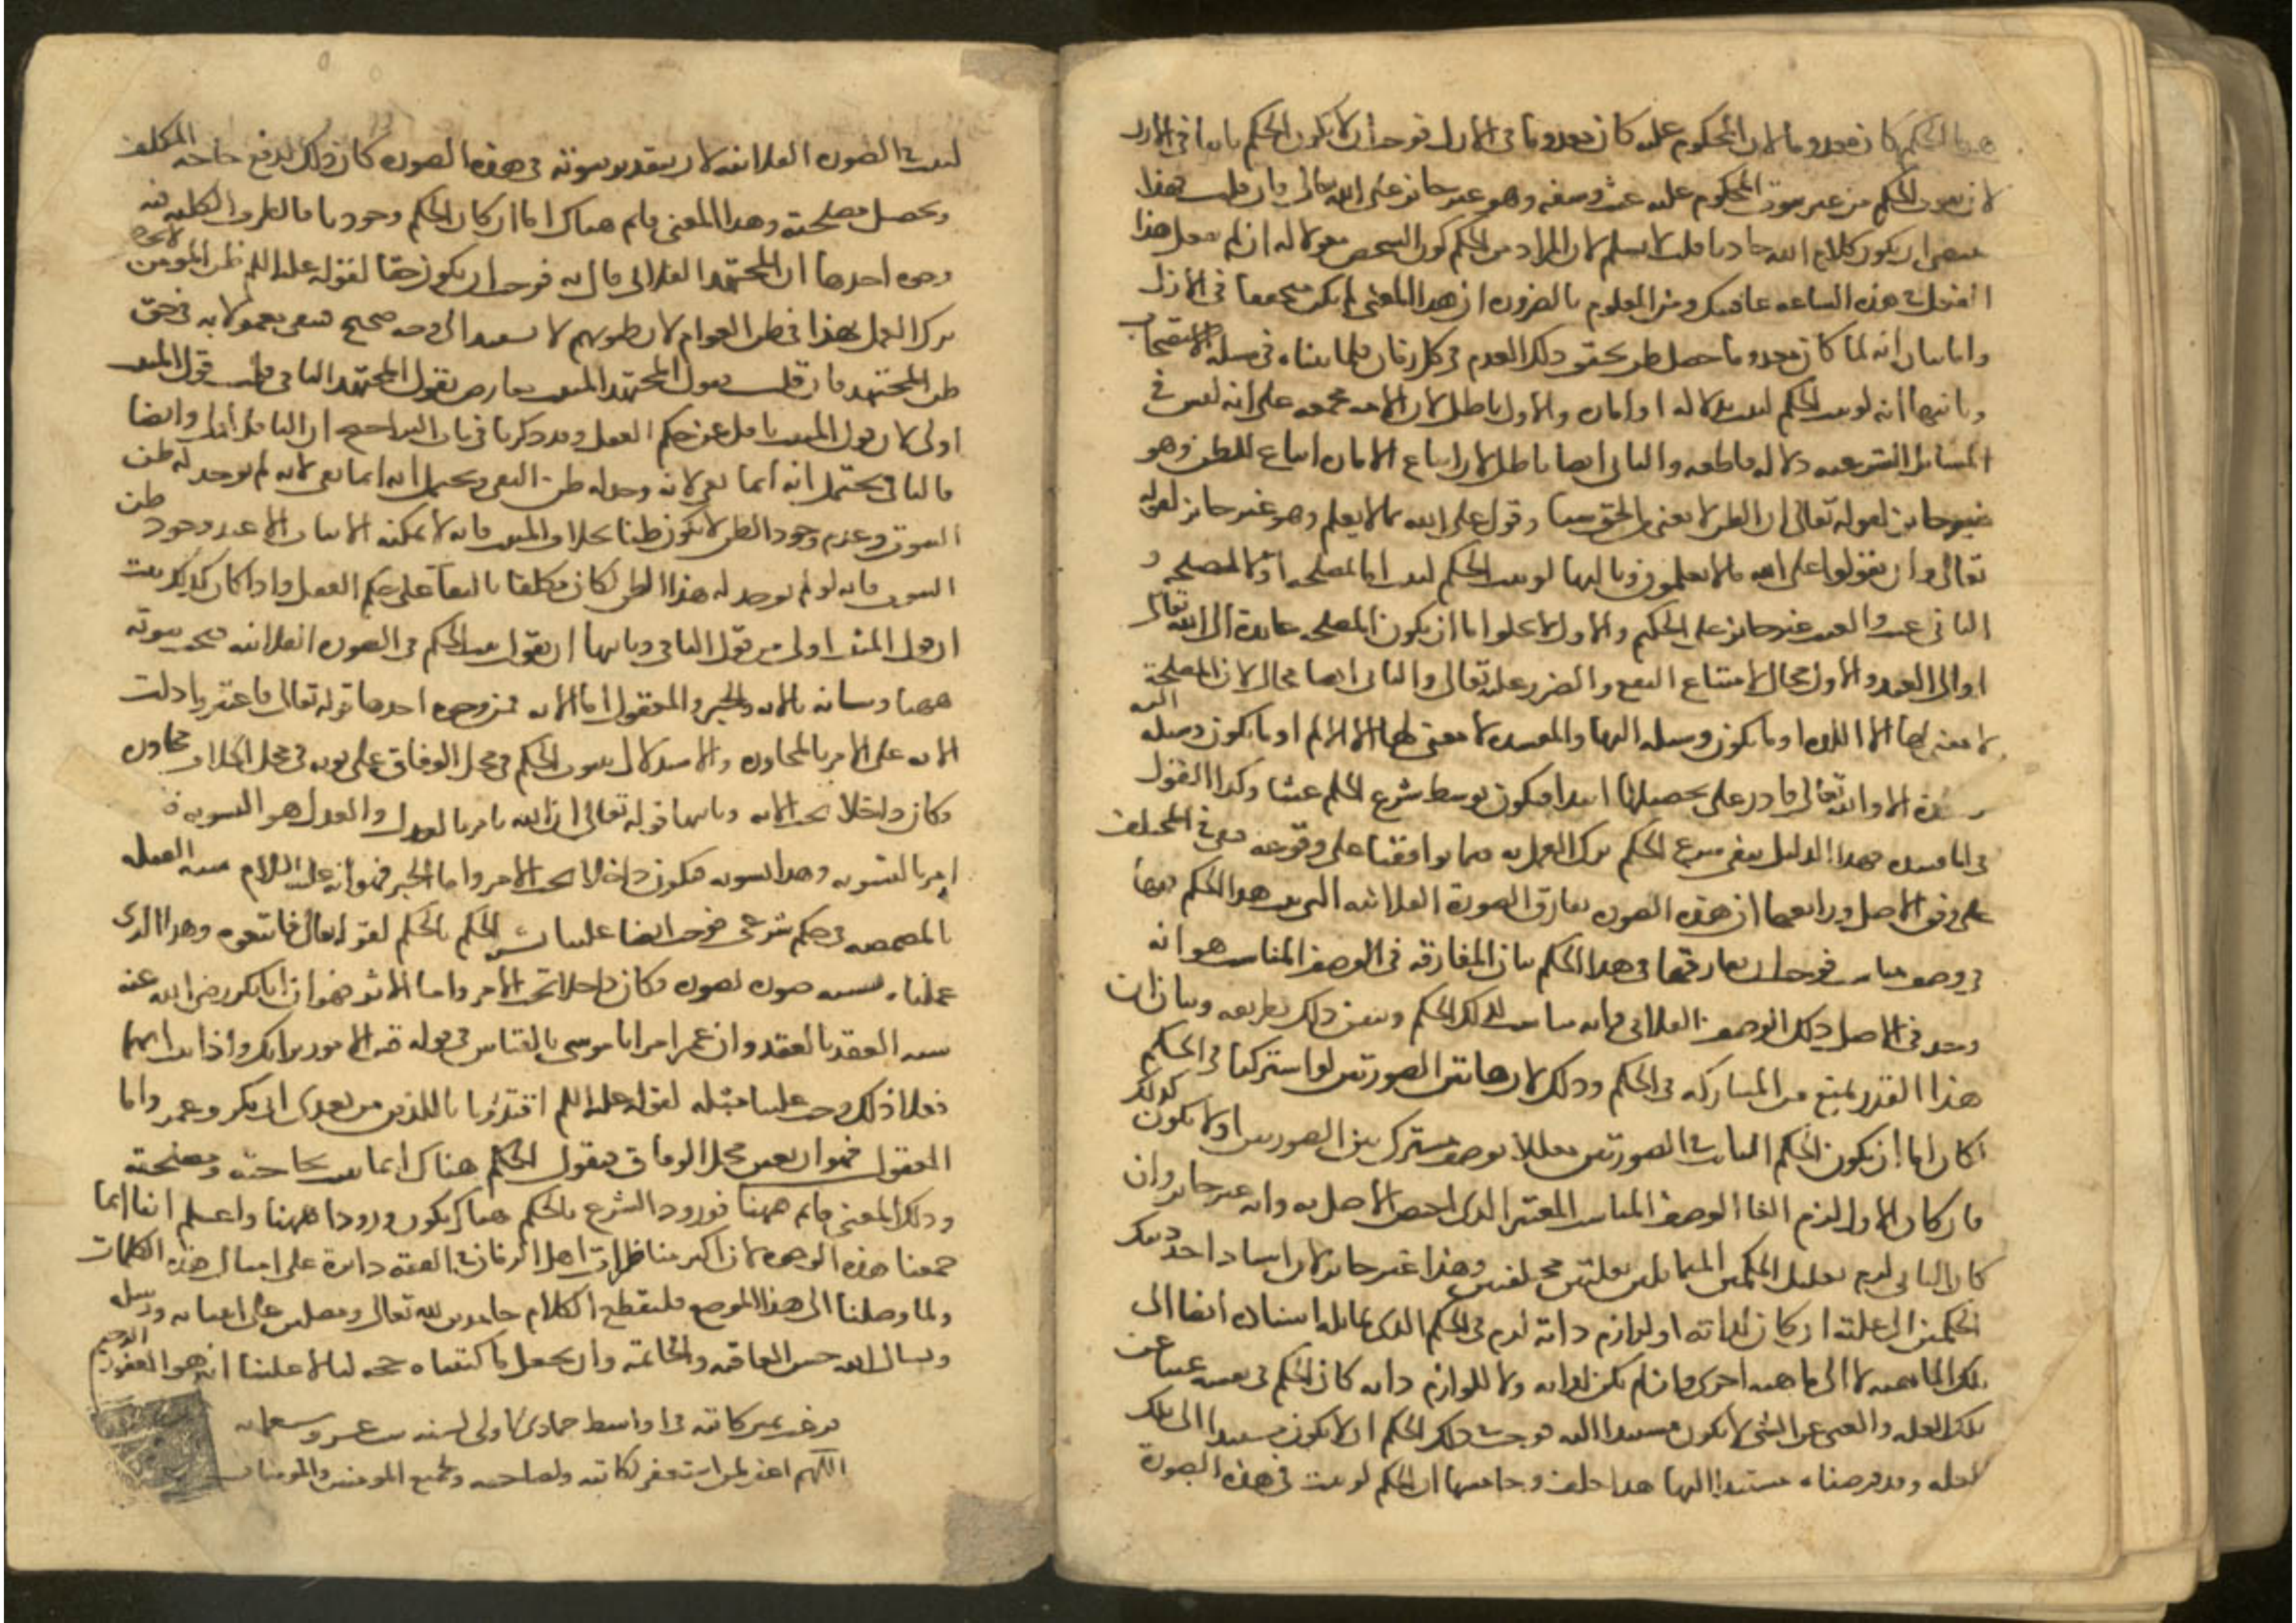 هذا الحكم كان معدوما لان المحكوم عليه كان معدوما في الازل فوجب ان لا يكون الحكم ثابتا في الازل
لان ثبوت الحكم من غير ثبوت المحكوم عليه عبث وسفه وهو غير جائز على الله تعالى فان قلت فهذا
يقتضي ان يكون كلام الله حادثا قلت لا نسلم لان المراد من الحكم كون الشخص مقولا له ان لم تفعل هذا
الفعل في هذه الساعة عاقبتك ومن المعلوم بالضرورة ان هذا المعنى لم يكن متحققا في الازل
واما بيان انه لما كان معدوما حصل ظن تحقق ذلك العدم في كل زمان فلما بيناه في مسئلة الاستصحاب
وثانيها انه لو ثبت الحكم لثبت بدلالة او امارة والاول باطل لان الامة مجمعة على انه ليس في
المسائل الشرعية دلالة قاطعة والثاني ايضا باطل لان اتباع الامارة اتباع للظن وهو
غير جائز لقوله تعالى ان الظن لا يغني من الحق شيئا وقول على الله بما لا يعلم وهو غير جائز لقوله
تعالى وان تقولوا على الله ما لا تعلمون وثالثها لو ثبت الحكم لثبت اما لمصلحة او لا لمصلحة و
الثاني عبث والعبث غير جائز على الحكيم والاول لا يخلو اما ان يكون المصلحة عائدة الى الله تعالى
او الى العبد والاول محال لامتناع النفع والضرر عليه تعالى والثاني ايضا محال لان المصلحة
لا معنى لها الا اللذة او ما يكون وسيلة اليها والمفسدة لا معنى لها الا الالم او ما يكون وسيلة اليه
لذة الا والله تعالى قادر على تحصيلها ابتداء فيكون توسط شرع الحكم عبثا وكذا القول
في المفسدة فهذا الدليل ينفي شرع الحكم ترك العمل به فيما توافقنا على وقوعه فبقي في المختلف
على وفق الاصل ورابعها ان هذه الصورة تفارق الصورة الفلانية التي ثبت هذا الحكم فيها
في وصف مناسب فوجب ان تفارقها في هذا الحكم بيان المفارقة في الوصف المناسب هو انه
وجد في الاصل ذلك الوصف الفلاني فانه مناسب لذلك الحكم ونبين ذلك بطريقه وبيان ان
هذا القدر يمنع من المشاركة في الحكم وذلك لان هاتين الصورتين لو اشتركتا في الحكم
لكان اما ان يكون الحكم الثابت في الصورتين معللا بوصف مشترك بين الصورتين او لا يكون كذلك
فان كان الاول لزم الغاء الوصف المناسب المعتبر الذي اختص الاصل به وانه غير جائز وان
كان الثاني لزم تعليل الحكمين المتماثلين بعلتين مختلفتين وهذا غير جائز لان اسناد احد ذينك
الحكمين الى علته ان كان لذاته او لوازم ذاته لزم في الحكم الذي يماثله اسناده ايضا الى
تلك الماهية لا الى ماهية اخرى وان لم يكن لذاته ولا للوازم ذاته كان الحكم في نفسه غنيا عن
تلك العلة والغني عن الشيء لا يكون مستندا اليه فوجب في ذلك الحكم ان لا يكون مستندا الى تلك
العلة وقد فرضناه مستندا اليها هذا خلف وخامسها ان الحكم لو ثبت في هذه الصورة
لثبت في الصورة الفلانية لان بتقدير ثبوته في هذه الصورة كان ذلك لدفع حاجة المكلف
وتحصيل مصلحته وهذا المعنى قائم هناك اما ان كان الحكم وجوديا فالطرق الكلية فيه
وجوه احدها ان المجتهد الفلاني قال به فوجب ان يكون حقا لقوله عليه السلم ظن المؤمن لا يخطئ
ترك العمل بهذا في ظن العوام لان ظنونهم لا تستند الى وجه صحيح فبقي معمولا به في حق
ظن المجتهد فان قلت قول المجتهد المثبت يعارض بقول المجتهد النافي قلت قول المثبت
اولى لان قول المثبت ناقل عن حكم العقل وقد ذكرنا في باب التراجيح ان الناقل اولى وايضا
فالنافي يحتمل انه انما نفى لانه وجد له ظن النفي ويحتمل انه انما نفى لانه لم يوجد له ظن
الثبوت وعدم وجود الظن لا يكون ظنا بخلاف المثبت فانه لا يمكنه الاثبات الا عند وجود ظن
الثبوت فانه لو لم يوجد له هذا الظن لكان مكلفا بالبقاء على حكم العقل واذا كان كذلك ثبت
ان قول المثبت اولى من قول النافي وثانيها ان نقول ثبت الحكم في الصورة الفلانية فيجب ثبوته
ههنا وبيانه بالاية والخبر والمعقول اما الاية فمن وجوه احدها قوله تعالى فاعتبروا دلت
الاية على الامر بالمجاوزة والاستدلال بثبوت الحكم في محل الوفاق على ثبوته في محل الخلاف مجاوزة
فكان داخلا تحت الاية وثانيها قوله تعالى ان الله يامر بالعدل والعدل هو التسوية
امر بالتسوية وهذا تسوية فيكون داخلا تحت الامر واما الخبر فهو انه عليه السلام شبه القبلة
بالمضمضة في حكم شرعي فوجب ايضا علينا تشبيه الحكم بالحكم لقوله تعالى فاتبعوه وهذا الذي
عملناه تشبيه صورة بصورة فكان داخلا تحت الامر واما الاثر فهو ان ابا بكر رضي الله عنه
شبه العقد بالعقد وان عمر امر ابا موسى بالقياس في قوله قس الامور برايك واذا ثبت انهما
فعلا ذلك وجب علينا مثله لقوله عليه السلم اقتدوا باللذين من بعدي ابي بكر وعمر واما
المعقول فهو ان نعين محل الوفاق فنقول الحكم هناك انما ثبت لحاجته ومصلحته
وذلك المعنى قائم ههنا فورود الشرع بالحكم هناك يكون ورودا ههنا واعلم اننا انما
جمعنا هذه الوجوه لان اكثر مناظرات اهل الزمان في الفقه دائرة على امثال هذه الكلمات
ولما وصلنا الى هذا الموضع فلنقطع الكلام حامدين لله تعالى ومصلين على انبيائه ورسله
ونسال الله حسن العاقبة والخاتمة وان يجعل ما كتبناه حجة لنا لا علينا انه هو الغفور الرحيم
فرغ من كتابته في اواسط جمادى الاولى لسنه ست عشر وسبعمايه
اللهم اغفر لمن استغفر لكاتبه ولصاحبه ولجميع المومنين والمومنات